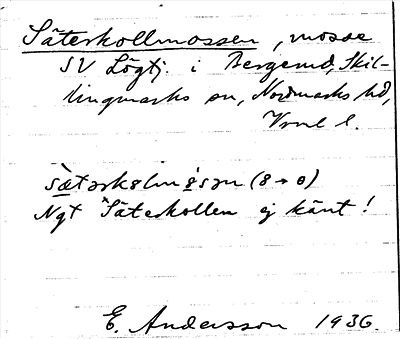 Säterkollmossen, mosse
SV Lögtj. i Bergerud, Skil-
lingmarks sn, Nordmarks hd,
Vrml l.
Ngt "Säterkollen ej känt!
E. Andersson 1936.